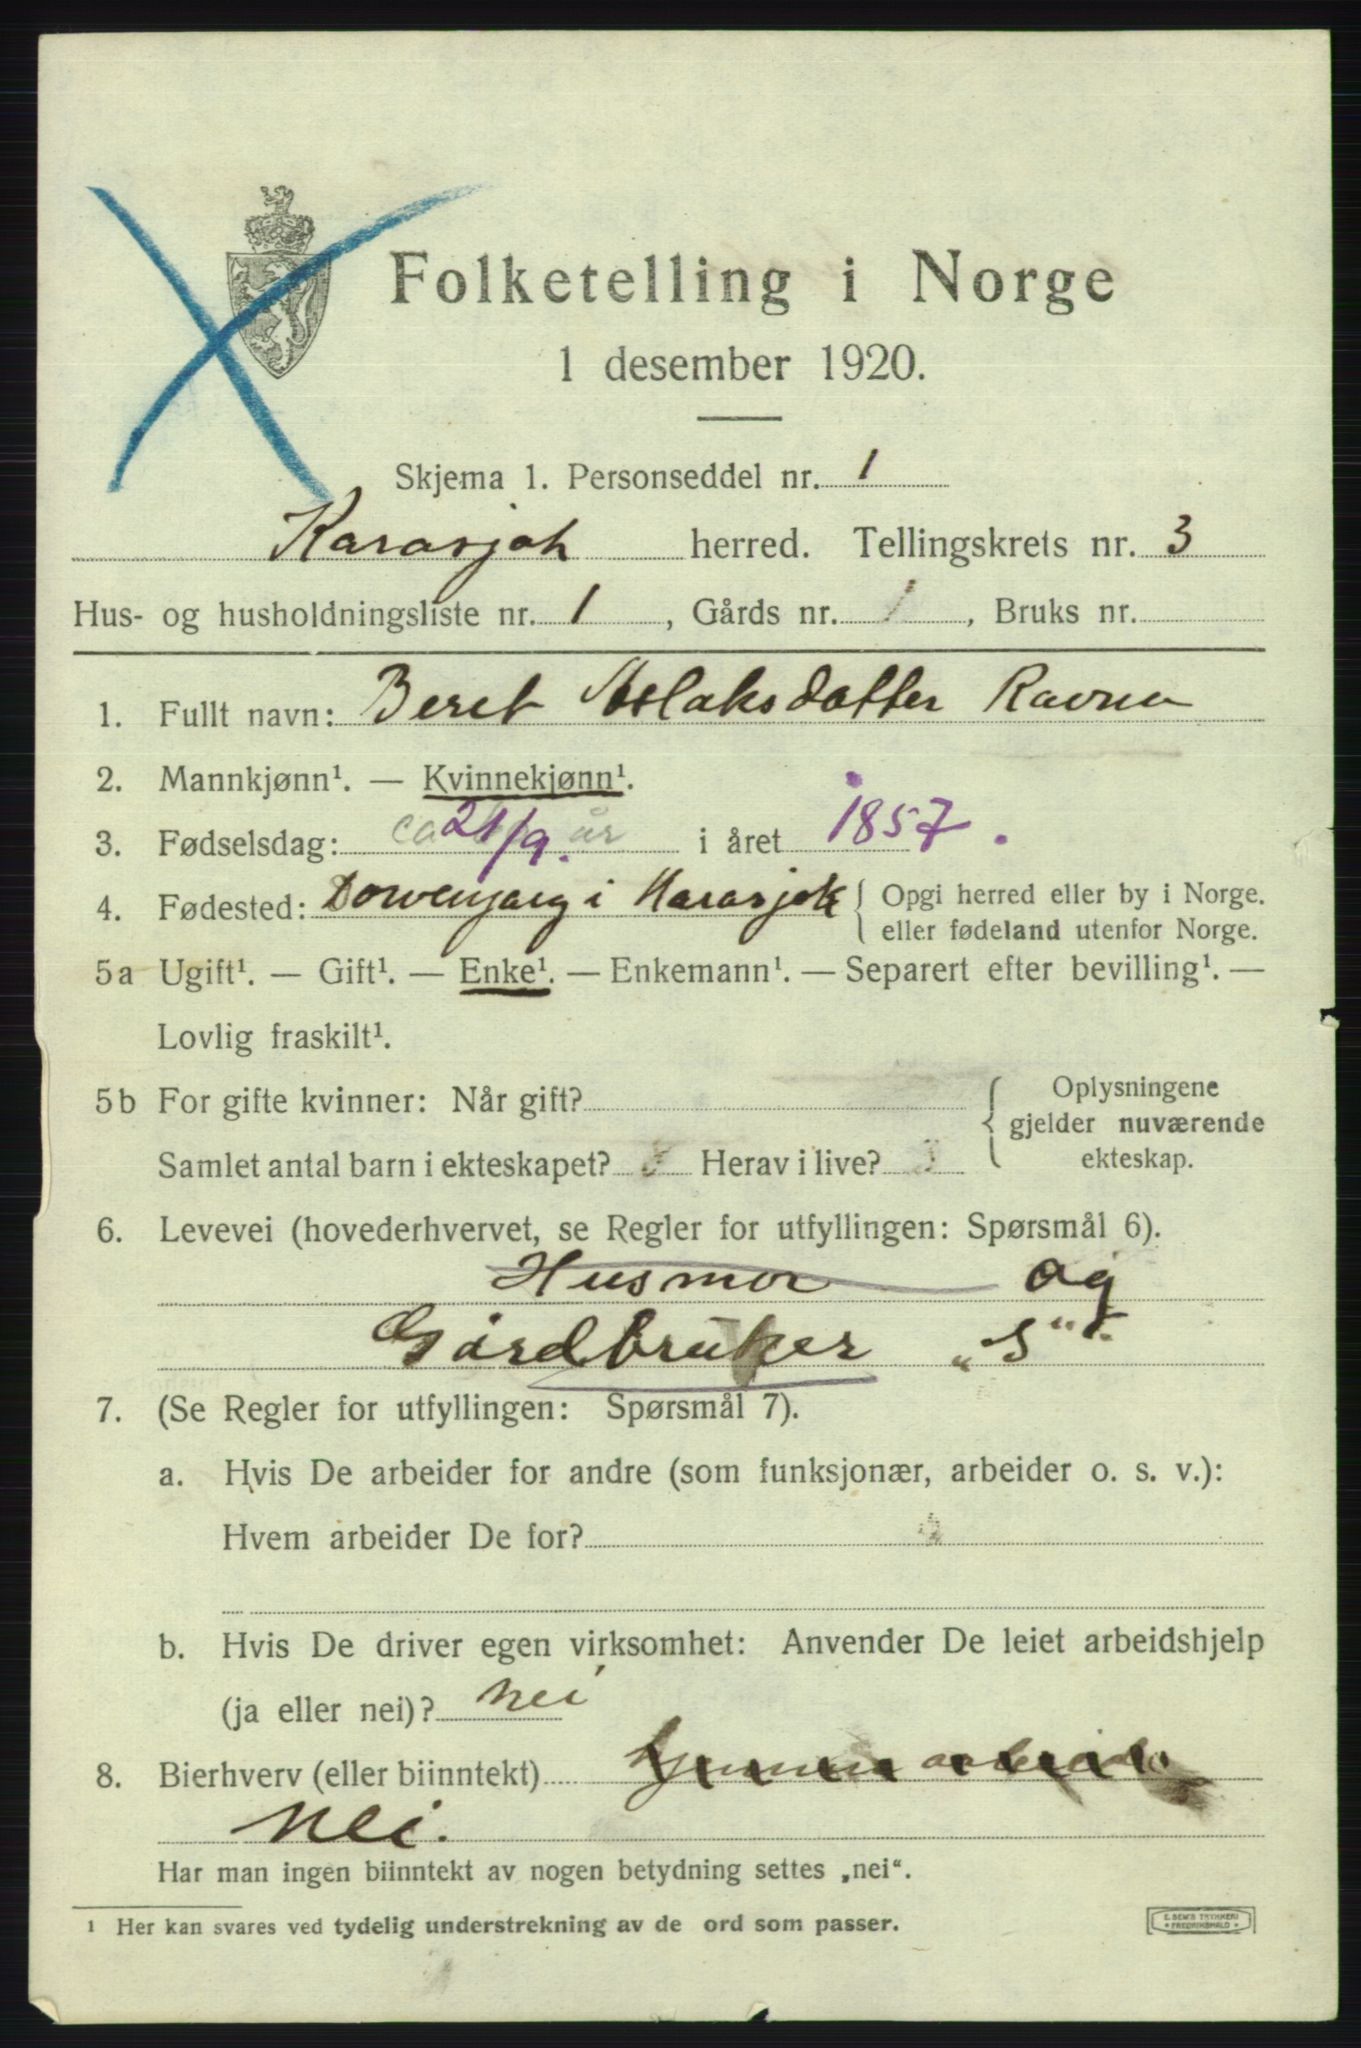 Folketelling i Norge
1 desember 1920.
Skjema 1. Personseddel nr. 1
Karasjok herred. Tellingskrets nr. 3
Hus- og husholdningsliste nr. 1, Gårds nr. 1, Bruks nr.
1. Fullt navn: Beret Aslaksdatter Ravna
2. Mannkjønn¹. — Kvinnekjønn¹.
3. Fødselsdag: ca 21/9. år i året 1857.
4. Fødested: i Karasjok { Opgi herred eller by i Norge.
eller fødeland utenfor Norge.
5a Ugift¹. — Gift¹. — Enke¹. — Enkemann¹. — Separert efter bevilling¹. —
Lovlig fraskilt¹.
5b For gifte kvinner: Når gift? { Oplysningene
gjelder nuværende
ekteskap.
Samlet antal barn i ekteskapet? Herav i live? 3
6. Levevei (hovederhvervet, se Regler for utfyllingen: Spørsmål 6).
Husmor og
Gårdbruker „S“
7. (Se Regler for utfyllingen: Spørsmål 7).
a. Hvis De arbeider for andre (som funksjonær, arbeider o. s. v.):
Hvem arbeider De for?
b. Hvis De driver egen virksomhet: Anvender De leiet arbeidshjelp
(ja eller nei)? nei
8. Bierhverv (eller biinntekt)
nei.
Har man ingen biinntekt av nogen betydning settes „nei“.
¹ Her kan svares ved tydelig understrekning av de ord som passer.
E. SEM'S TRYKKERI
FREDRIKSHALD